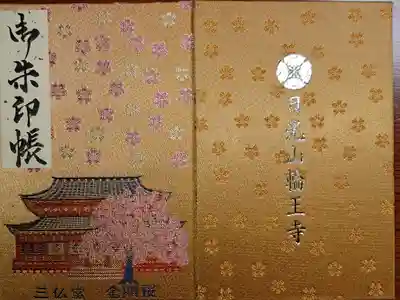 御朱印帳
三仏堂 金剛桜
日光山輪王寺